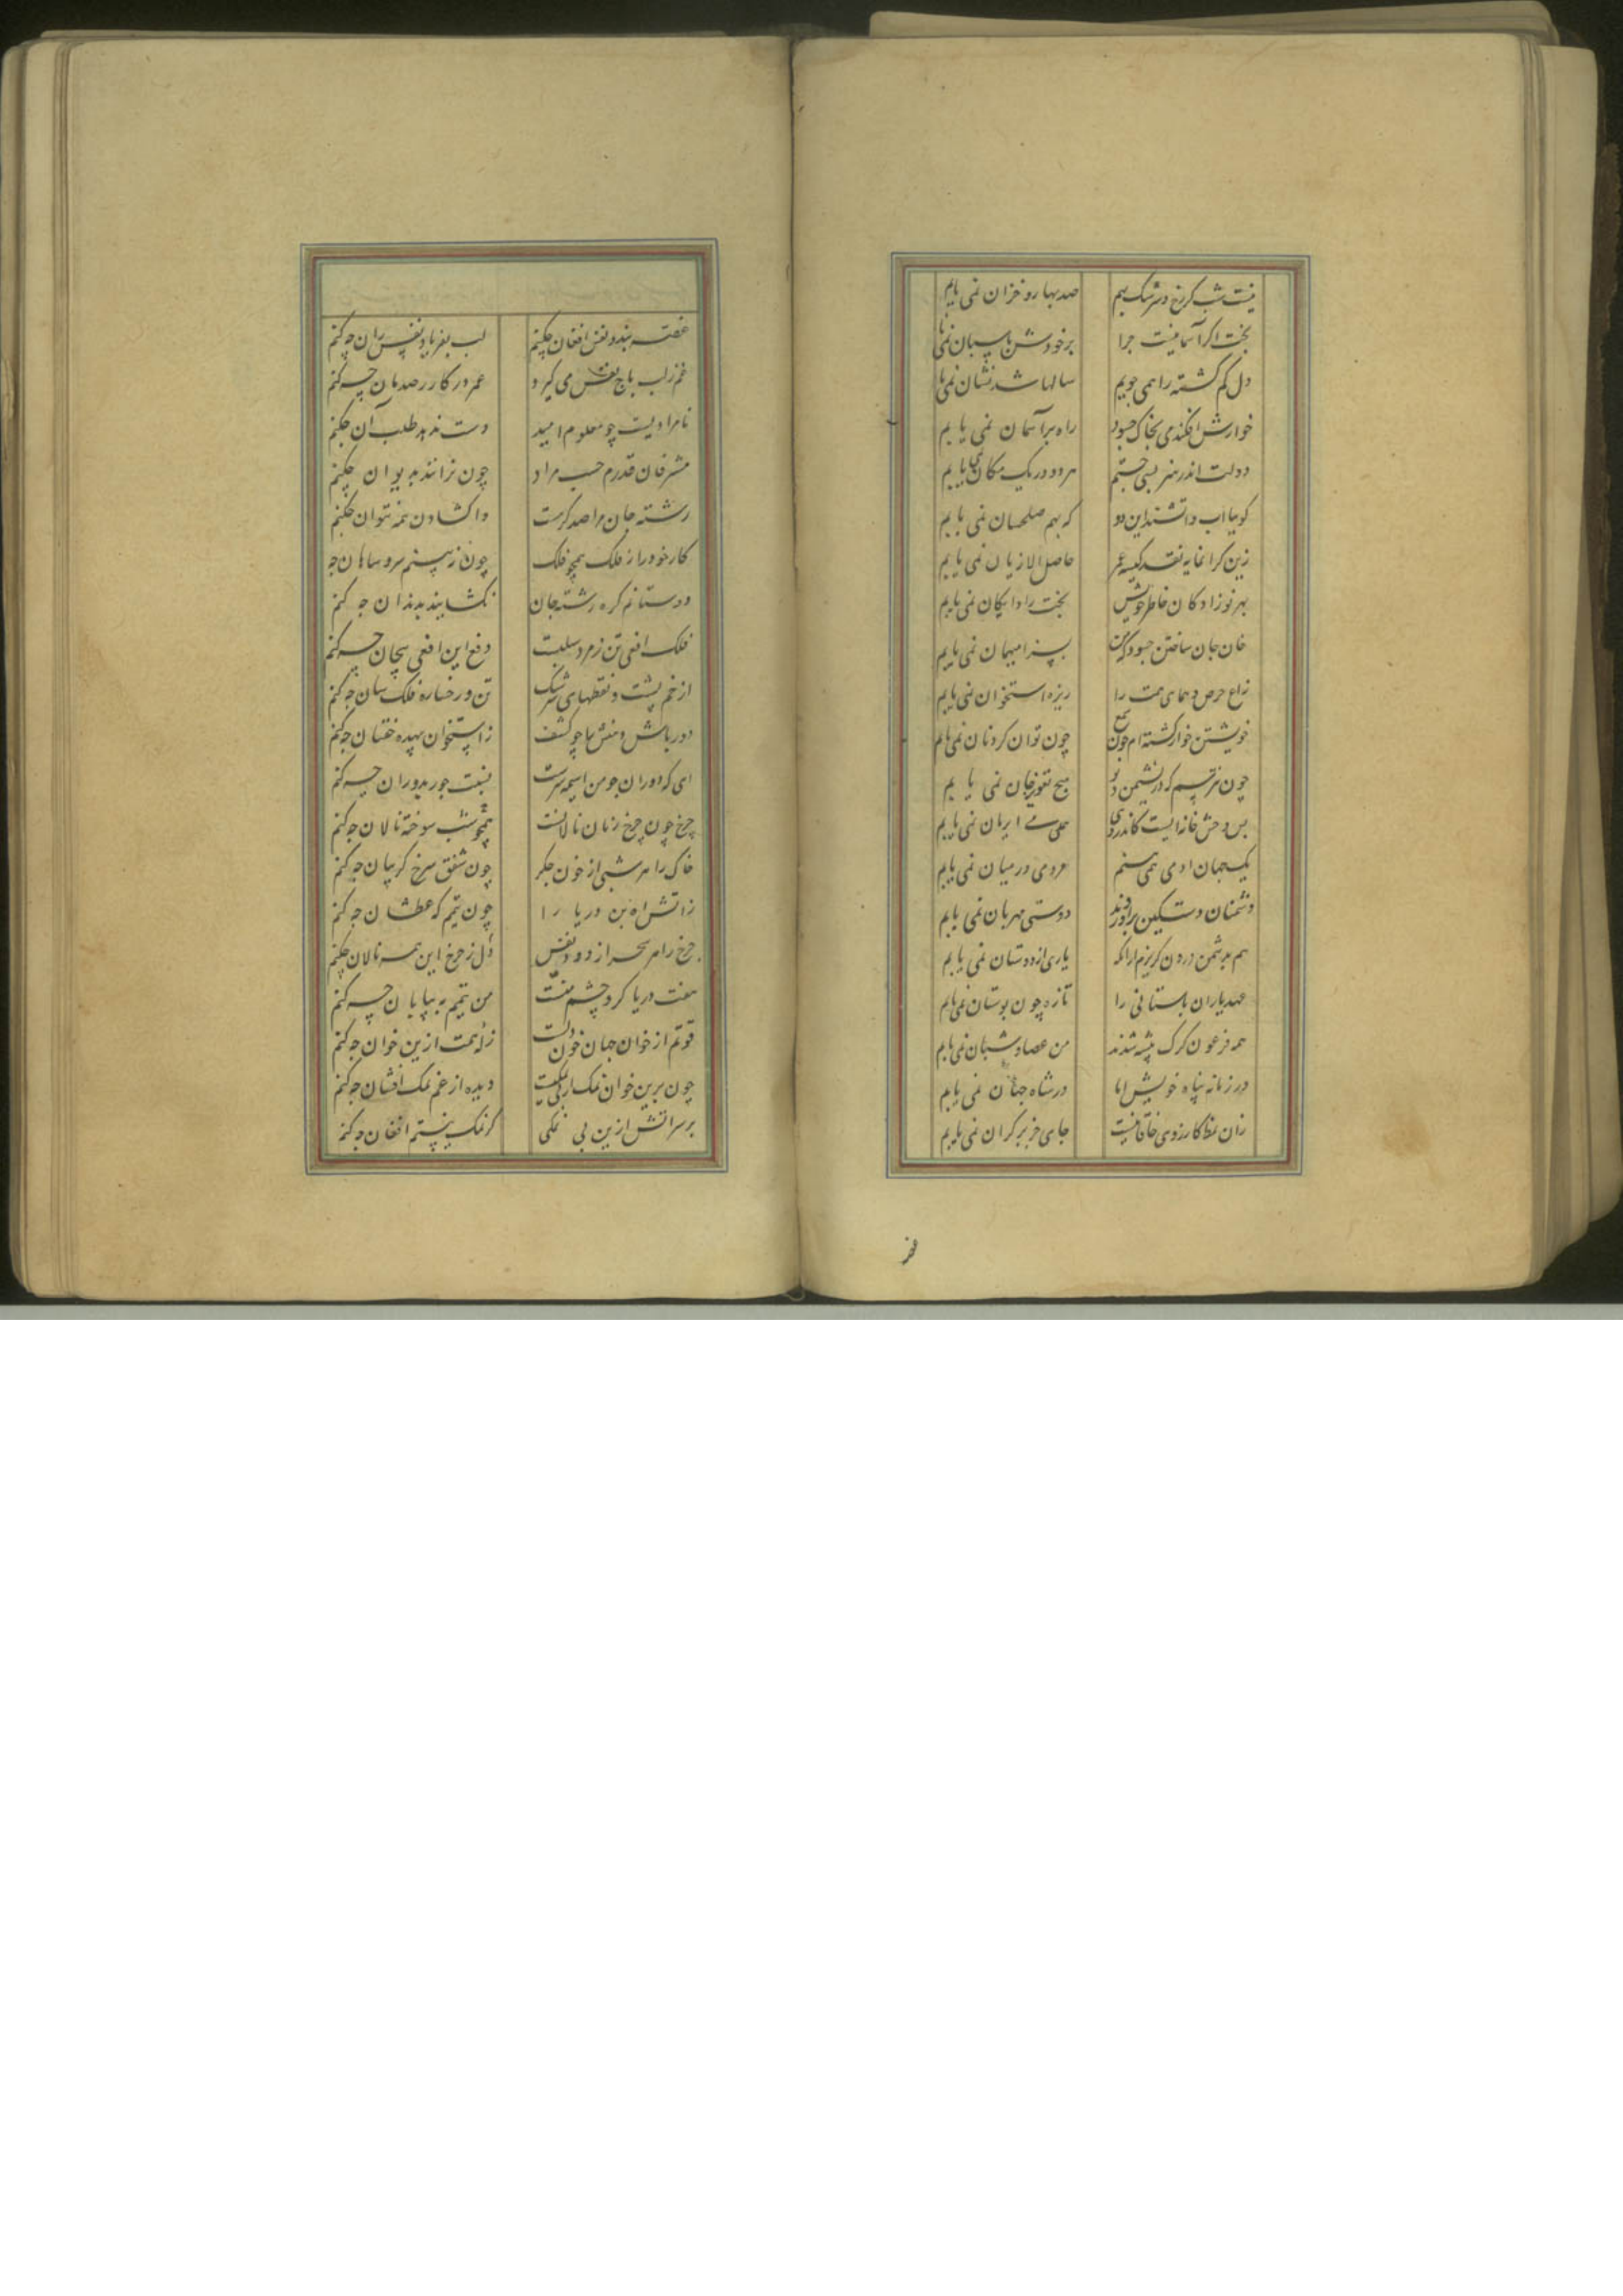 نیست شب کز رخ و سرشک بهم صد بهار و خزان نمی یابم
بخت اگر آسمانیست چرا بر خودش پاسبان نمی یابم
دل گم گشته را همی جویم سالها شد نشان نمی یابم
خوارش افکندمی بخاک چه سود راه بر آسمان نمی یابم
دولت اندر هنر بسی جستم هر دو در یک مکان نمی یابم
گوییا آب و آتشند این دو که بهم صلحسان نمی یابم
زین گرانمایه نقد کیسه عمر حاصل الا زیان نمی یابم
بهر نوزادگان خاطر خویش بخت را دایگان نمی یابم
خان جان ساختن چه سود که من بسزا میهمان نمی یابم
زاغ حرص و همای همت را ریزه استخوان نمی یابم
خویشتن خوار گشته‌ام چون شمع چون توان کرد نان نمی یابم
چون نترسم که در نشیمن دیو هیچ تعویذ جان نمی یابم
بس وحش خانه ایست کاندر وی همی یابم
یک جهان آدمی همی بینم مردمی در میان نمی یابم
دشمنان دست کین برآوردند دوستی مهربان نمی یابم
هم بدشمن درون گریزم ازآنکه یاری از دوستان نمی یابم
عهد یاران باستانی را تازه چون بوستان نمی یابم
همه فرعون گرگ پیشه شدند من عصا و شبان نمی یابم
در زمانه پناه خویش الا در شاه جهان نمی یابم
زان نمط کارزوی خاقانیست جای جز بر کران نمی یابم
غصه
غصه بندد نفس افغان چکنم لب بفریاد نفس ران چه کنم
غم ز لب باج نفس می گیرد عمر در کار رصدبان چه کنم
نامرادیست چو معلوم امید دست ندهد طلب آن چکنم
مشرفان قدرم حسب مراد چون نرانند بدیوان چکنم
رشته جان مرا صد گرهست واگشادن نه نتوان چکنم
کار خود را ز فلک همچو فلک چون نبینم سر و سامان چه
دوستانم گره رشته جان نگشایند بدندان چه کنم
فلک افعی تن زمرد سلبست دفع این افعی پیچان چه کنم
از خم پشت و نقطهای سرشک تن و رخساره فلک سان چه کنم
دور باش دهنش را چو کشف ز استخوان بیهده خفتان چه کنم
ای که دوران چو من اسیمه سرست نسبت جور بدوران چه کنم
چرخ چون چرخ زنان نالانست همچو شب سوخته نالان چه کنم
خاک را هر شبی از خون جگر چون شفق سرخ گریبان چه کنم
زآتش آه بن دریا را چون تیمم که عطشان چه کنم
چرخ را هر سحر از دود نفس دل ز چرخ این همه نالان چکنم
هفت دریا گرو چشم منست من تیمم به بیابان چه کنم
قوتم از خوان جهان خون دلست زله همت ازین خوان چه کنم
چون برین خوان نمک دیده از غم نمک افشان چه کنم
بر سر آتش ازین بی نمکی گر نمک نیستم افغان چه کنم